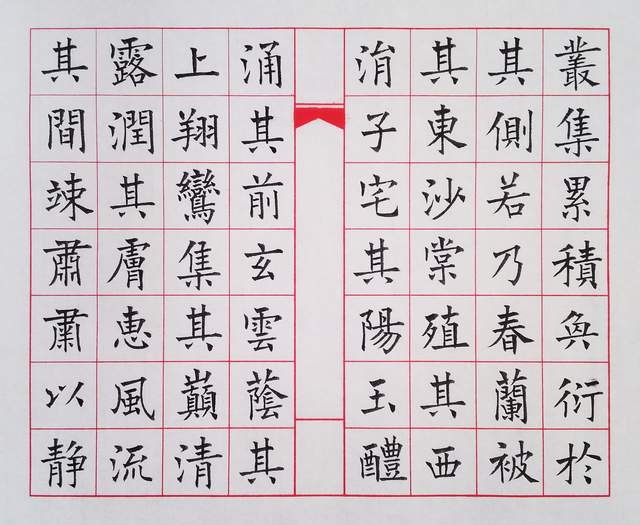 叢集累積奐衍於
其側若乃春蘭被
其東沙棠殖其西
涓子宅其陽玉醴
涌其前玄雲蔭其
上翔鸞集其巔清
露潤其膚惠風流
其間竦肅肅以静